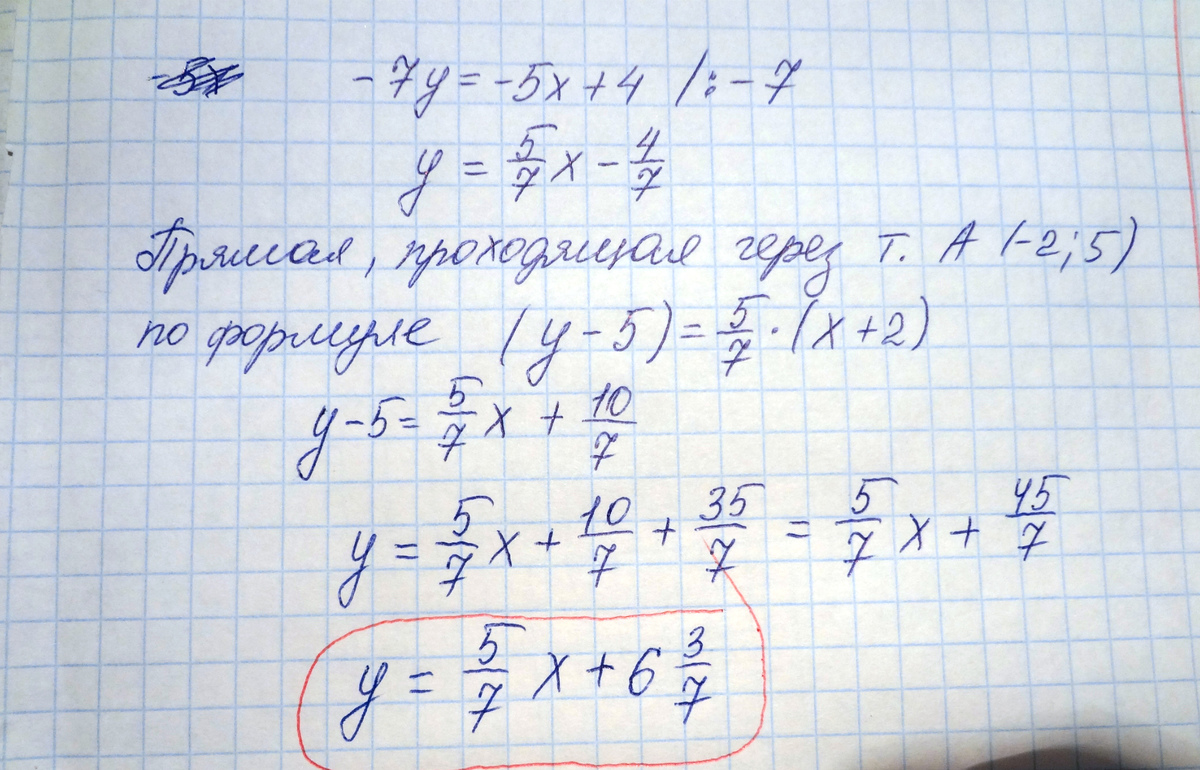 -5x -7y = -5x + 4 /: -7
y = 5/7 x - 4/7
Прямая, проходящая через т. А (-2; 5)
по формуле (y - 5) = 5/7 · (x + 2)
y - 5 = 5/7 x + 10/7
y = 5/7 x + 10/7 + 35/7 = 5/7 x + 45/7
y = 5/7 x + 6 3/7